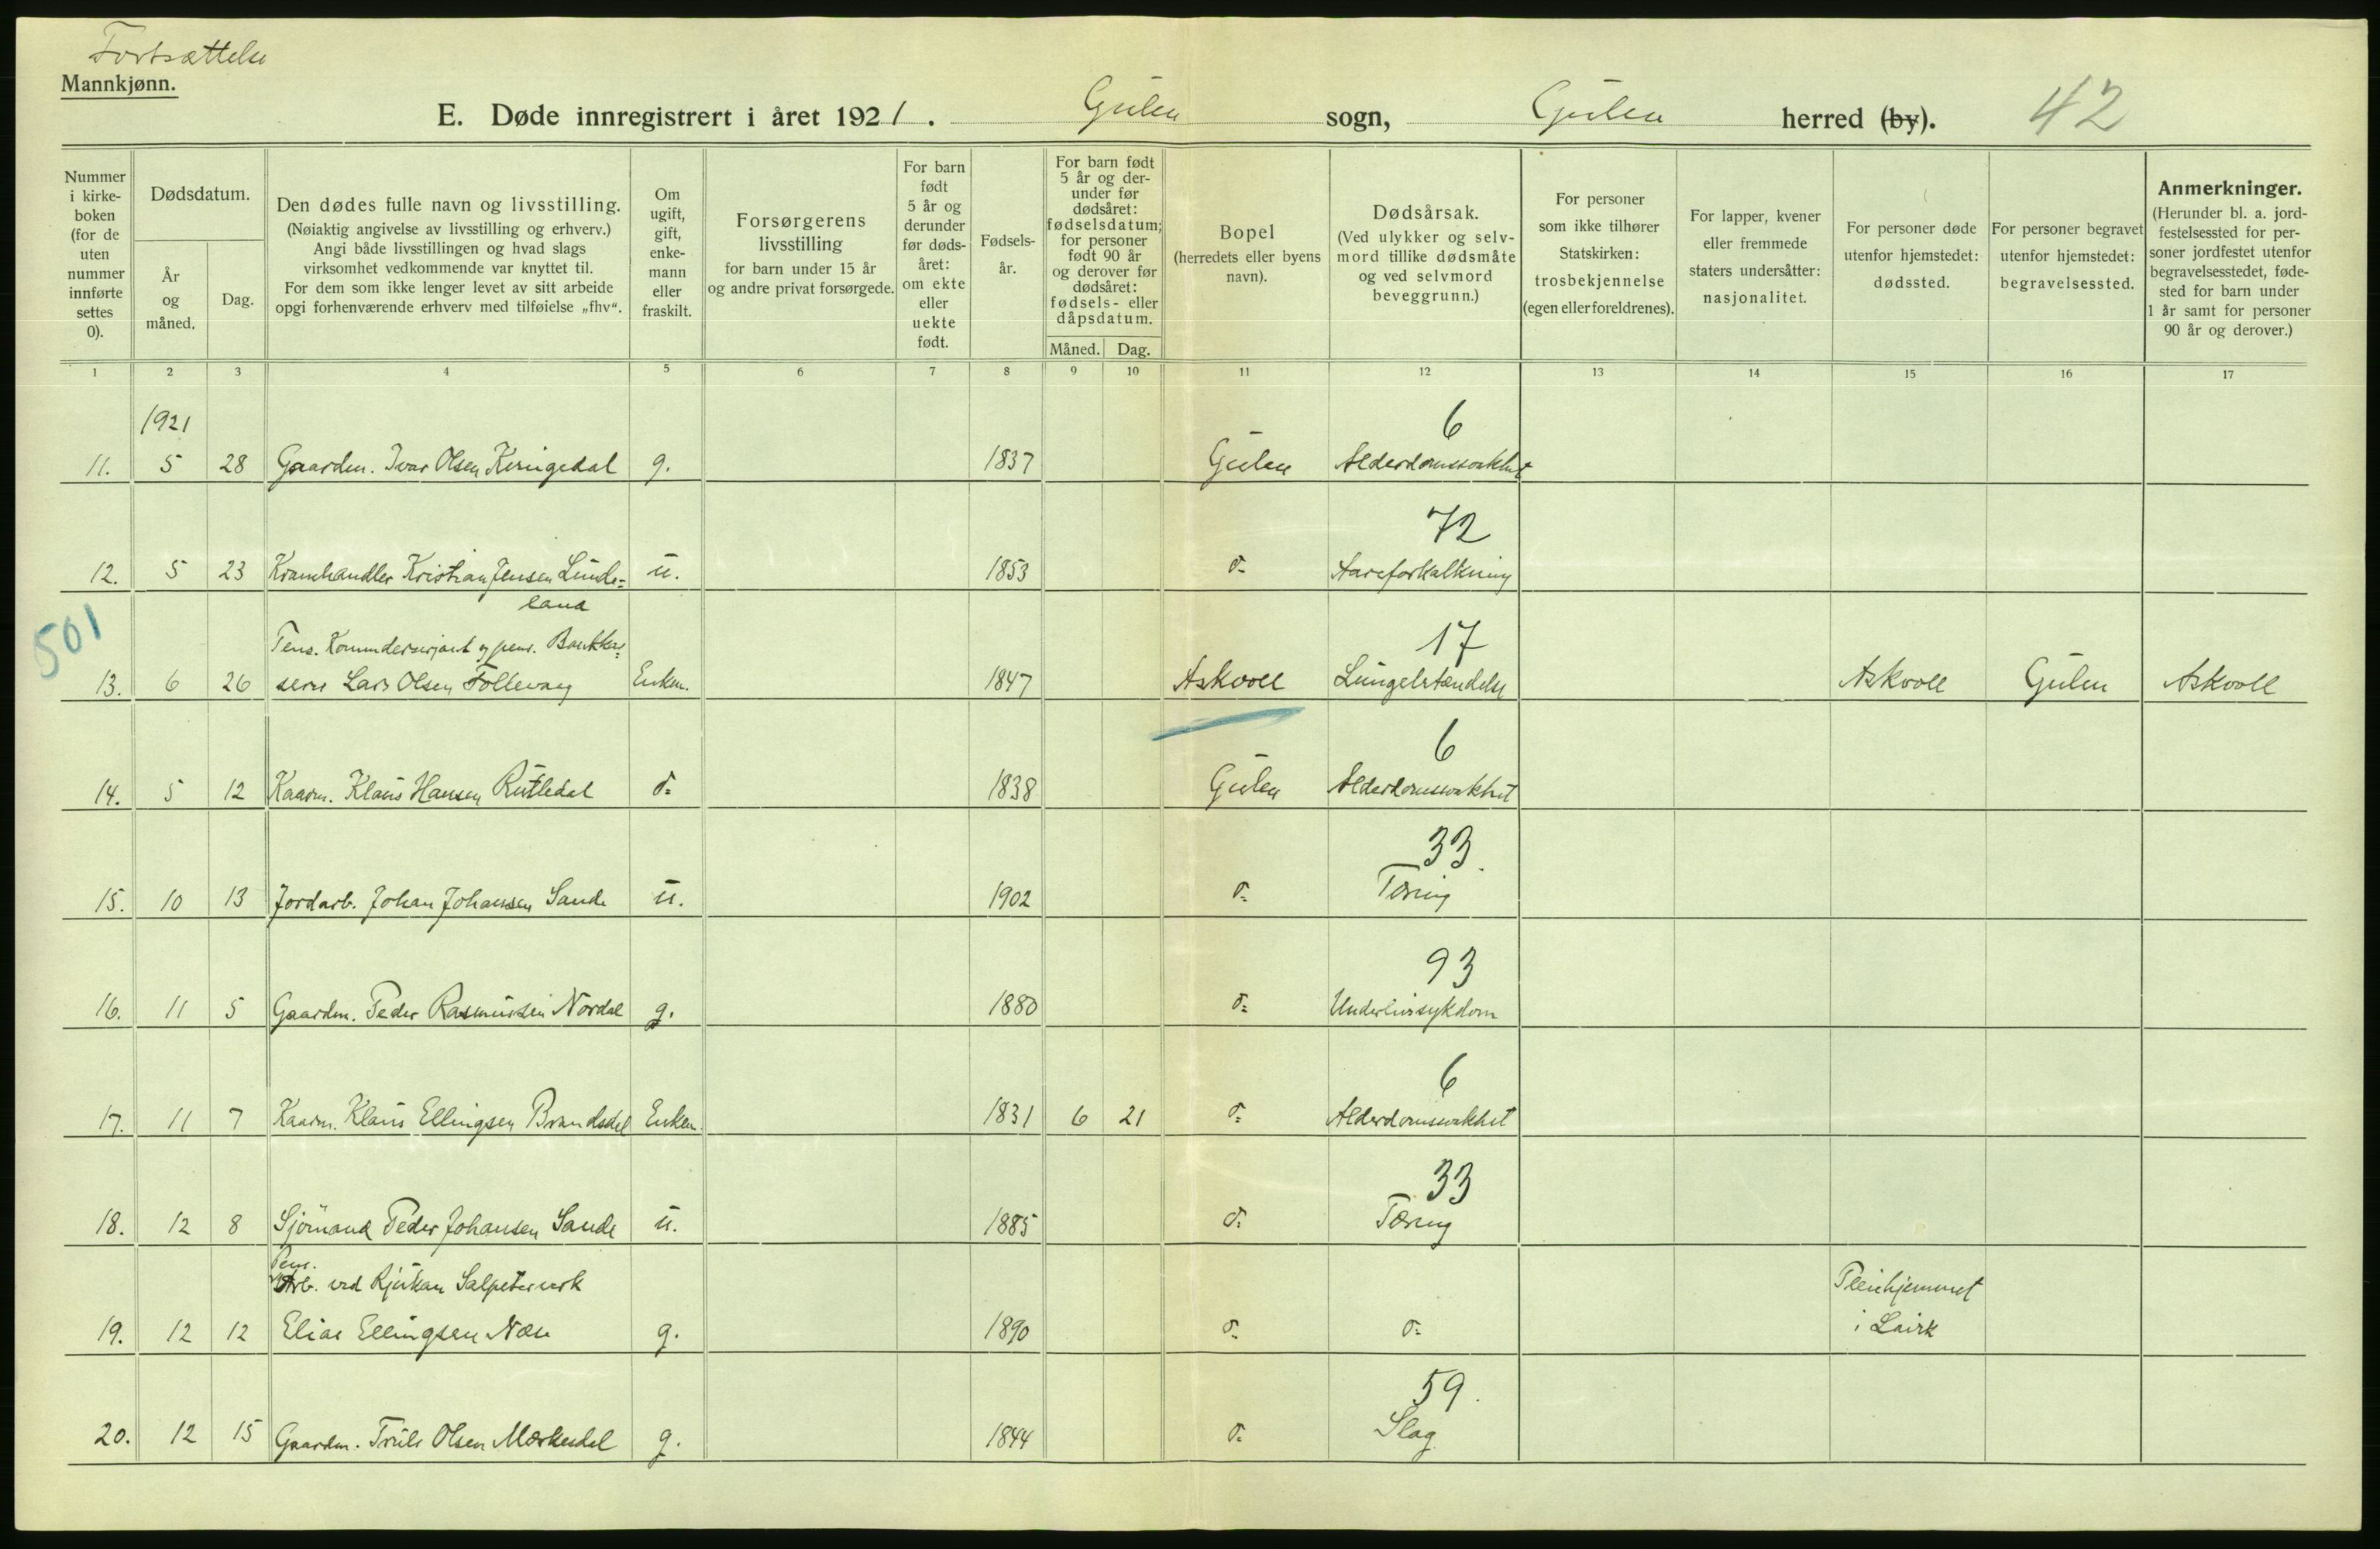 Fortsættelse
Mannkjønn.
E. Døde innregistrert i året 1921. Gulen sogn, Gulen herred (by). 42
Nummer i kirke-boken (for de uten nummer innførte settes 0).
Dødsdatum.
År og måned.
Dag.
Den dødes fulle navn og livsstilling.
(Nøiaktig angivelse av livsstilling og erhverv.)
Angi både livsstillingen og hvad slags
virksomhet vedkommende var knyttet til.
For dem som ikke lenger levet av sitt arbeide
opgi forhenværende erhverv med tilføielse „fhv“.
Om ugift, gift, enke-mann eller fraskilt.
Forsørgerens
livsstilling
for barn under 15 år
og andre privat forsørgede.
For barn født 5 år og derunder før døds-året: om ekte eller uekte født.
Fødsels-år.
For barn født 5 år og der-under før dødsåret: fødselsdatum; for personer født 90 år og derover før dødsåret: fødsels- eller dåpsdatum.
Måned. Dag.
Bopel
(herredets eller byens navn).
Dødsårsak.
(Ved ulykker og selv-mord tillike dødsmåte og ved selvmord beveggrunn.)
For personer som ikke tilhører Statskirken: trosbekjennelse (egen eller foreldrenes).
For lapper, kvener eller fremmede staters undersåtter: nasjonalitet.
For personer døde utenfor hjemstedet: dødssted.
For personer begravet utenfor hjemstedet: begravelsessted.
Anmerkninger.
(Herunder bl. a. jord-festelsessted for per-soner jordfestet utenfor begravelsesstedet, føde-sted for barn under 1 år samt for personer 90 år og derover.)
1 2 3 4 5 6 7 8 9 10 11 12 13 14 15 16 17
1921 6
11. 5 28 Gaardm. Ivar Olsen Keringedal g. 1837 Gulen Alderdomssvakhet
72
12. 5 23 Kramhandler Kristian Jensen Lunde= u. 1853 d= Aareforkalkning
land
501 Pens. Kommdersersjant og pens. Bankkas= 17
13. 6 26 serer Lars Olsen Follevaag Enkem. 1847 Askvoll Lungebetændelse Askvoll Gulen Askvoll
6
14. 5 12 Kaarm. Klaus Hansen Rutledal d= 1838 Gulen Alderdomssvakhet
33
15. 10 13 Jordarb. Johan Johansen Sande u. 1902 d= Tæring
93
16. 11 5 Gaardm. Peder Rasmussen Nordal g. 1880 d= Underlivssykdom
6
17. 11 7 Kaarm. Klaus Ellingsen Brandsdal Enkem. 1831 6 21 d= Alderdomssvakhet
33
18. 12 8 Sjømand Peder Johansen Sande u. 1885 d= Tæring
Pens.
Arb. ved Rjukan Salpeterverk Pleiehjemmet
19. 12 12 Elias Ellingsen Næse g. 1890 d= d= i Lavik
59.
20. 12 15 Gaardm. Truls Olsen Mærkesdal g. 1844 d= Slag